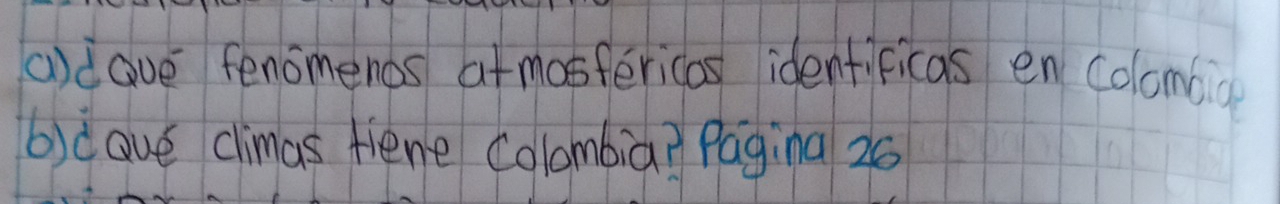 a)¿Qué fenómenos atmosféricos identificas en Colombia
b)¿Qué climas tiene Colombia? Página 26